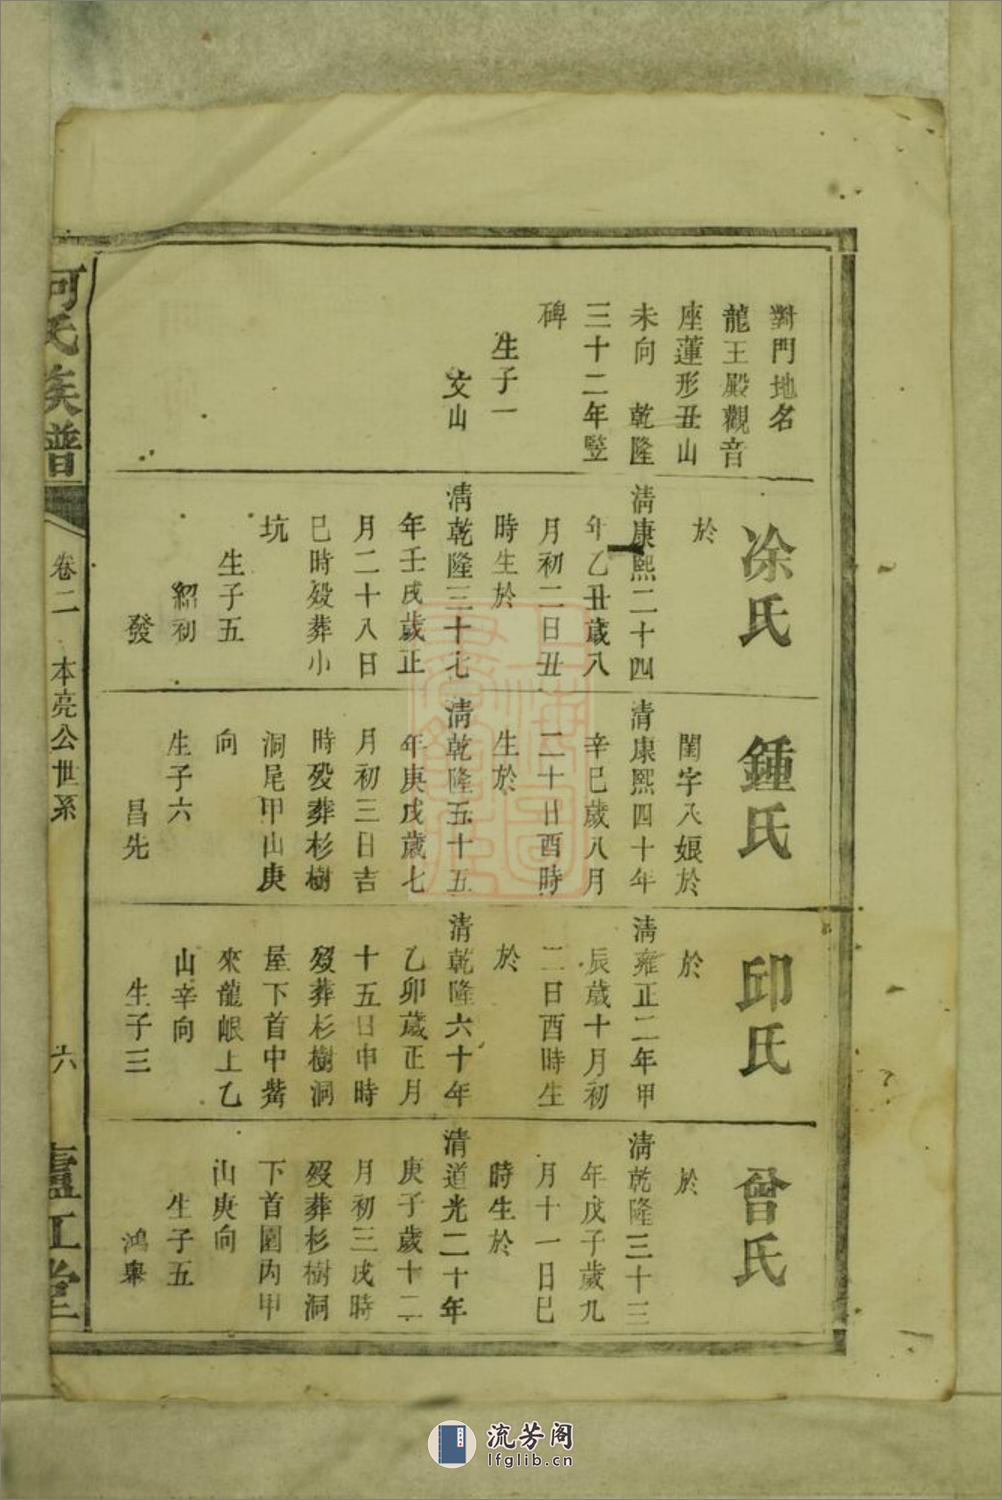 對門地名
龍王殿觀音
座蓮形丑山
未向　乾隆
三十二年豎
碑
生子一
文山
凃氏
於
清康熙二十四
年乙丑歲八
月初二日丑
時生於
清乾隆三十七
年壬戌歲正
月二十八日
巳時殁葬小
坑
生子五
紹初
發
鍾氏
閨字八娘於
清康熙四十年
辛巳歲八月
二十日酉時
生於
清乾隆五十五
年庚戌歲七
月初三日吉
時殁葬杉樹
洞尾甲山庚
向
生子六
昌先
邱氏
於
清雍正二年甲
辰歲十月初
二日酉時生
於
清乾隆六十年
乙卯歲正月
十五日申時
殁葬杉樹洞
屋下首中
來龍峎上乙
山辛向
生子三
曾氏
於
清乾隆三十三
年戊子歲九
月十一日巳
時生於
清道光二十年
庚子歲十二
月初三戌時
殁葬杉樹洞
下首園內甲
山庚向
生子五
鴻舉
何氏族譜
卷二　本亮公世系
六
廬江堂
流芳阁
lfglib.cn